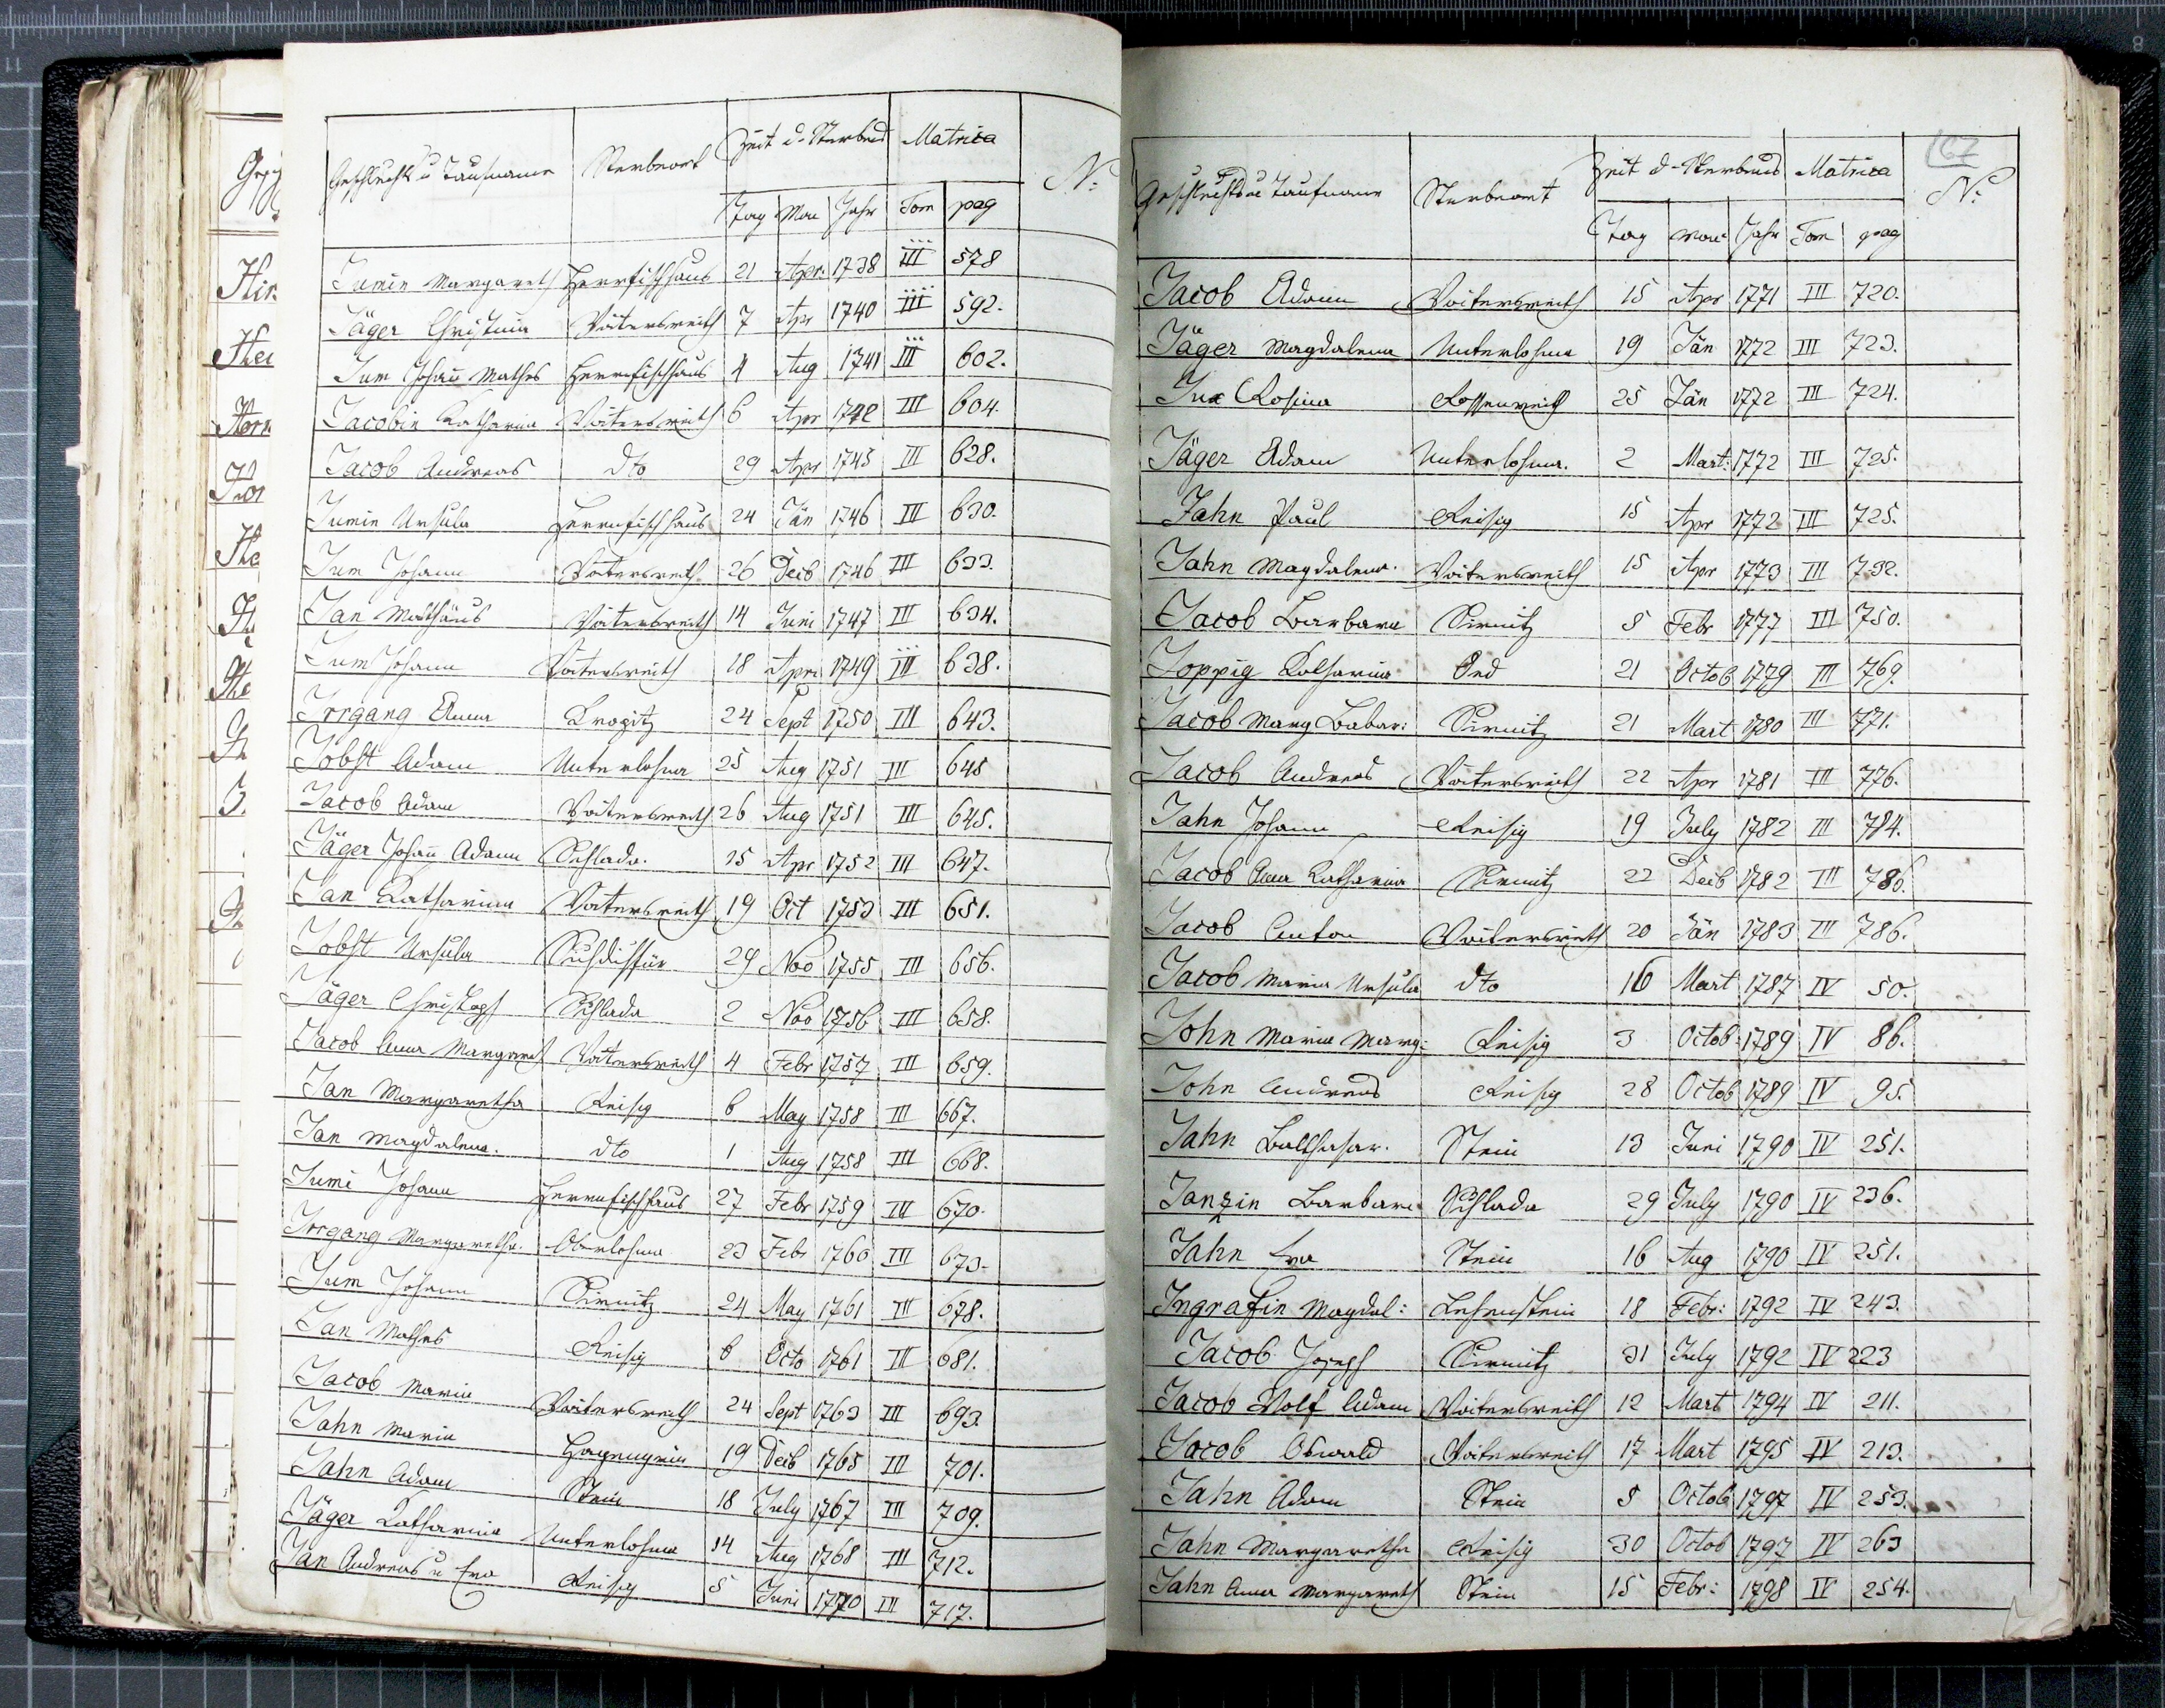 Geschlechts u Taufname Sterbeort Zeit d. Sterbens Matrica N:
Tag Mon Jahr Tom pag
Jumin Margareth Herrnfischhaus 21 Apr: 1738 III 578
Jäger Christina Voitersreith 7 Apr 1740 III 592.
Jum Johañ Mathes Herrnfischhaus 4 Aug 1741 III 602.
Jacobin Katharina Voitersreith 6 Apr 1742 III 604.
Jacob Andreas dto 29 Apr 1745 III 628.
Jumin Ursula Herrnfischhaus 24 Jän 1746 III 630.
Jum Johann Voitersreith 26 Decb 1746 III 633.
Jan Mathäus Voitersreith 14 Juni 1747 III 634.
Jum Johann Voitersreith 18 Apr: 1749 III 638.
Irrgang Anna Kropitz 24 Sept 1750 III 643.
Jobst Adam Unterlohma 25 Aug 1751 III 645
Jacob Adam Voitersreith 26 Aug 1751 III 645.
Jäger Johañ Adam Schlada. 15 Apr 1752 III 647.
Jan Katharina Voitersreith 19 Oct 1753 III 651.
Jobst Ursula 29 Nov 1755 III 656.
Jäger Christoph Schlada 2 Nov 1756 III 658.
Jacob Anna Margareth Voitersreith 4 Febr 1757 III 659.
Jan Margaretha Reisig 6 May 1758 III 667.
Jan Magdalena. dto 1 Aug 1758 III 668.
Jumi Johann Herrnfischhaus 27 Febr 1759 III 670.
Irrgang Margaretha. Oberlohma 23 Febr 1760 III 673.
Jum Johann Sirmitz 24 May 1761 III 678.
Jan Mathes Reisig 6 Octo 1761 III 681.
Jacob Maria Voitersreith 24 Sept 1763 III 693.
Jahn Maria Hagengrün 19 Decb 1765 III 701.
Jahn Adam Stein 18 July 1767 III 709.
Jäger Katharina Unterlohma 14 Aug 1768 III 712.
Jan Andreas u Eva Reisig 5 Juni 1770 III 717.
167
Geschlechts u Taufname Sterbeort Zeit d. Sterbens Matrica N:
Tag Mon Jahr Tom pag
Jacob Adam Voitersreith 15 Apr 1771 III 720.
Jäger Magdalena Unterlohma 19 Jän 1772 III 723.
Rosina Rossenreith 25 Jän 1772 III 724.
Jäger Adam Unterlohma. 2 Mart: 1772 III 725.
Jahn Paul Reisig 15 Apr 1772 III 725.
Jahn Magdalena. Voitersreith 15 Apr 1773 III 732.
Jacob Barbara Sirmitz 8 Febr 1777 III 750.
Joppig Katharina Oed 21 Octob 1779 III 769.
Jacob Marg Babar: Sirmitz 21 Mart 1780 III 771.
Jacob Andreas Voitersreith 22 Apr 1781 III 776.
Jahn Johann Reisig 19 July 1782 III 784.
Jacob Anna Katharina Sirmitz 22 Decb 1782 III 786.
Jacob Anton Voitersreith 20 Jän 1783 III 786.
Jacob Maria Ursula dto 16 Mart 1787 IV 50.
John Maria Marg: Reisig 3 Octob: 1789 IV 86.
John Andreas Reisig 28 Octob 1789 IV 95.
Jahn Balthasar. Stein 13 Juni 1790 IV 251.
Janzin Barbara Schlada 29 July 1790 IV 236.
Jahn Eva Stein 16 Aug 1790 IV 251.
Ingrafin Magdal: Lehenstein 18 Febr: 1792 IV 243.
Jacob Joseph Sirmitz 31 July 1792 IV 223
Jacob Wolf Adam Voitersreith 12 Mart 1794 IV 211.
Jacob Oswald Voitersreith 17 Mart 1795 IV 213.
Jahn Adam Stein 8 Octob 1797 IV 253.
Jahn Margaretha Reisig 30 Octob 1797 IV 263
Jahn Anna Margareth Stein 15 Febr: 1798 IV 254.